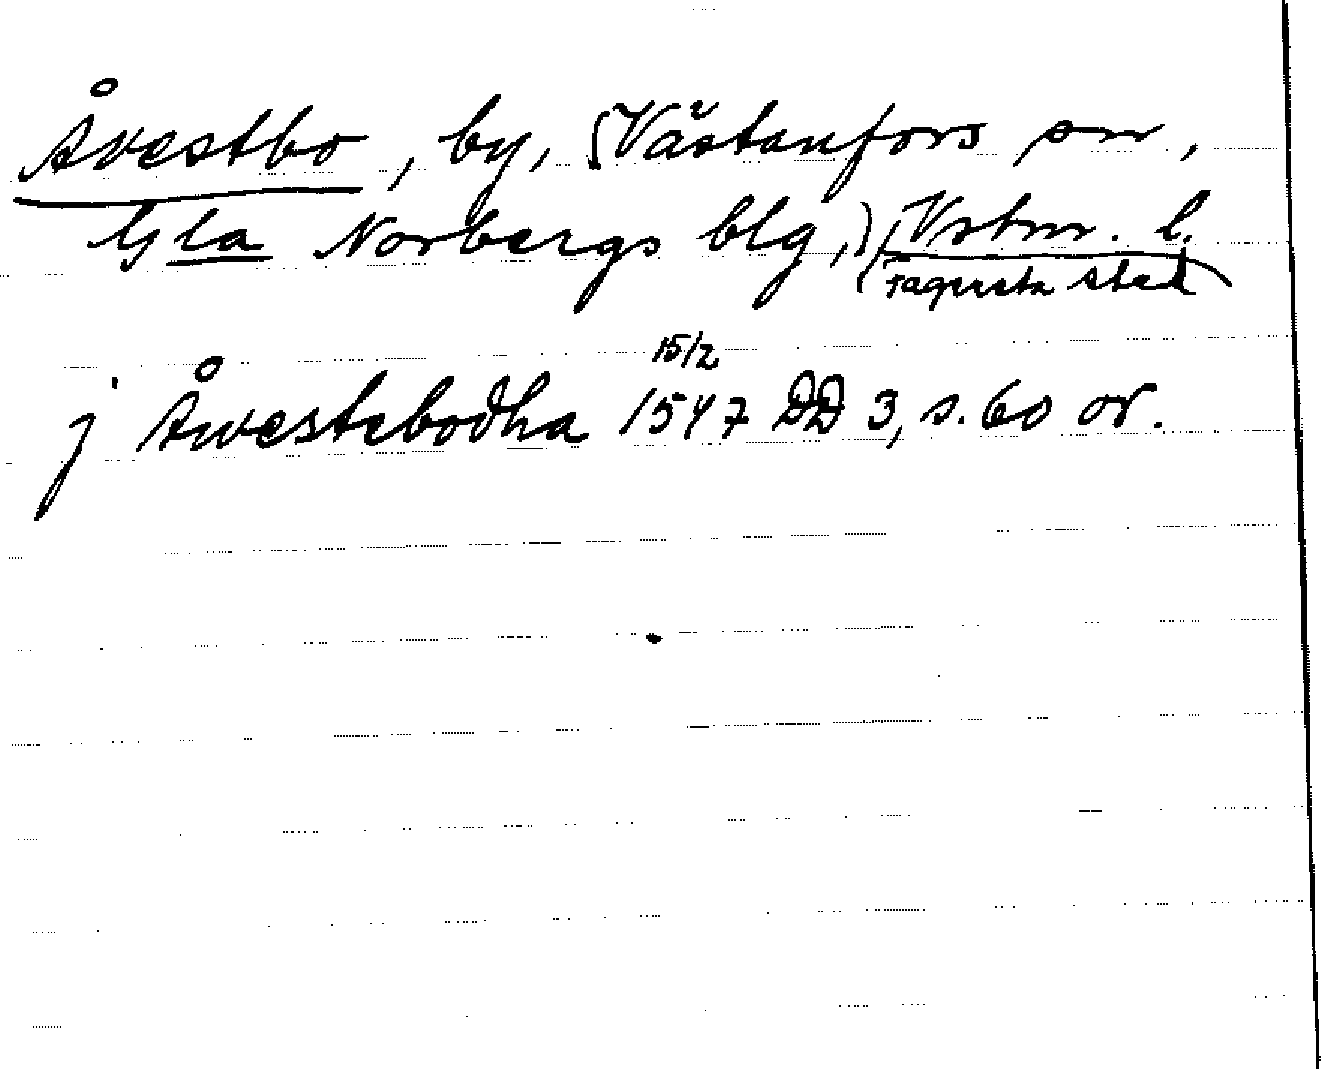 Åvestbo, by, (Västanfors sn,
Gla Norbergs blg,) (Vstm. l.
Fagersta stad
15/2
j Åwestebodha 1547 DD 3, s. 60 or.